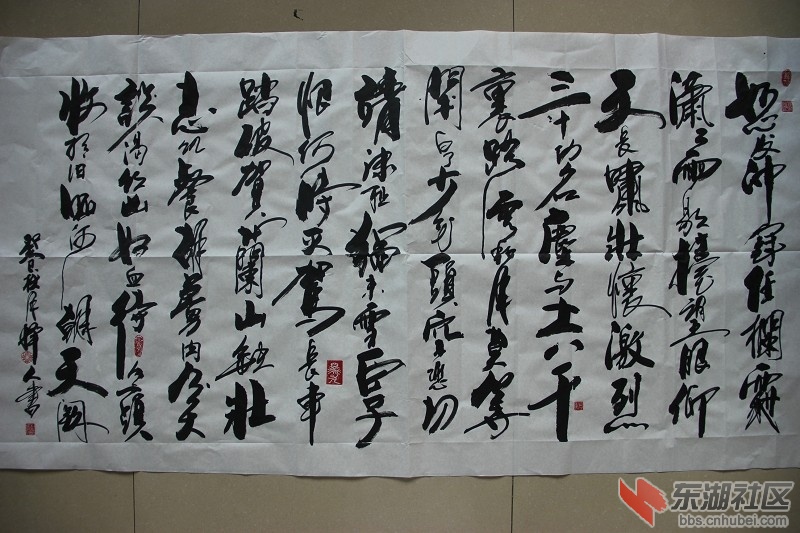 怒发冲冠凭欄處
瀟〻雨歇抬望眼仰
天長嘯壯懷激烈
三十功名塵与土八千
裏路雲和月莫等
閑白了少年頭空悲切
靖康耻猶未雪臣子
恨何時灭駕長車
踏破賀蘭山缺壯
志飢餐胡虜肉笑
談渴飲匈奴血待从頭
收拾旧山河朝天阙
东湖社区
bbs.cnhubei.com